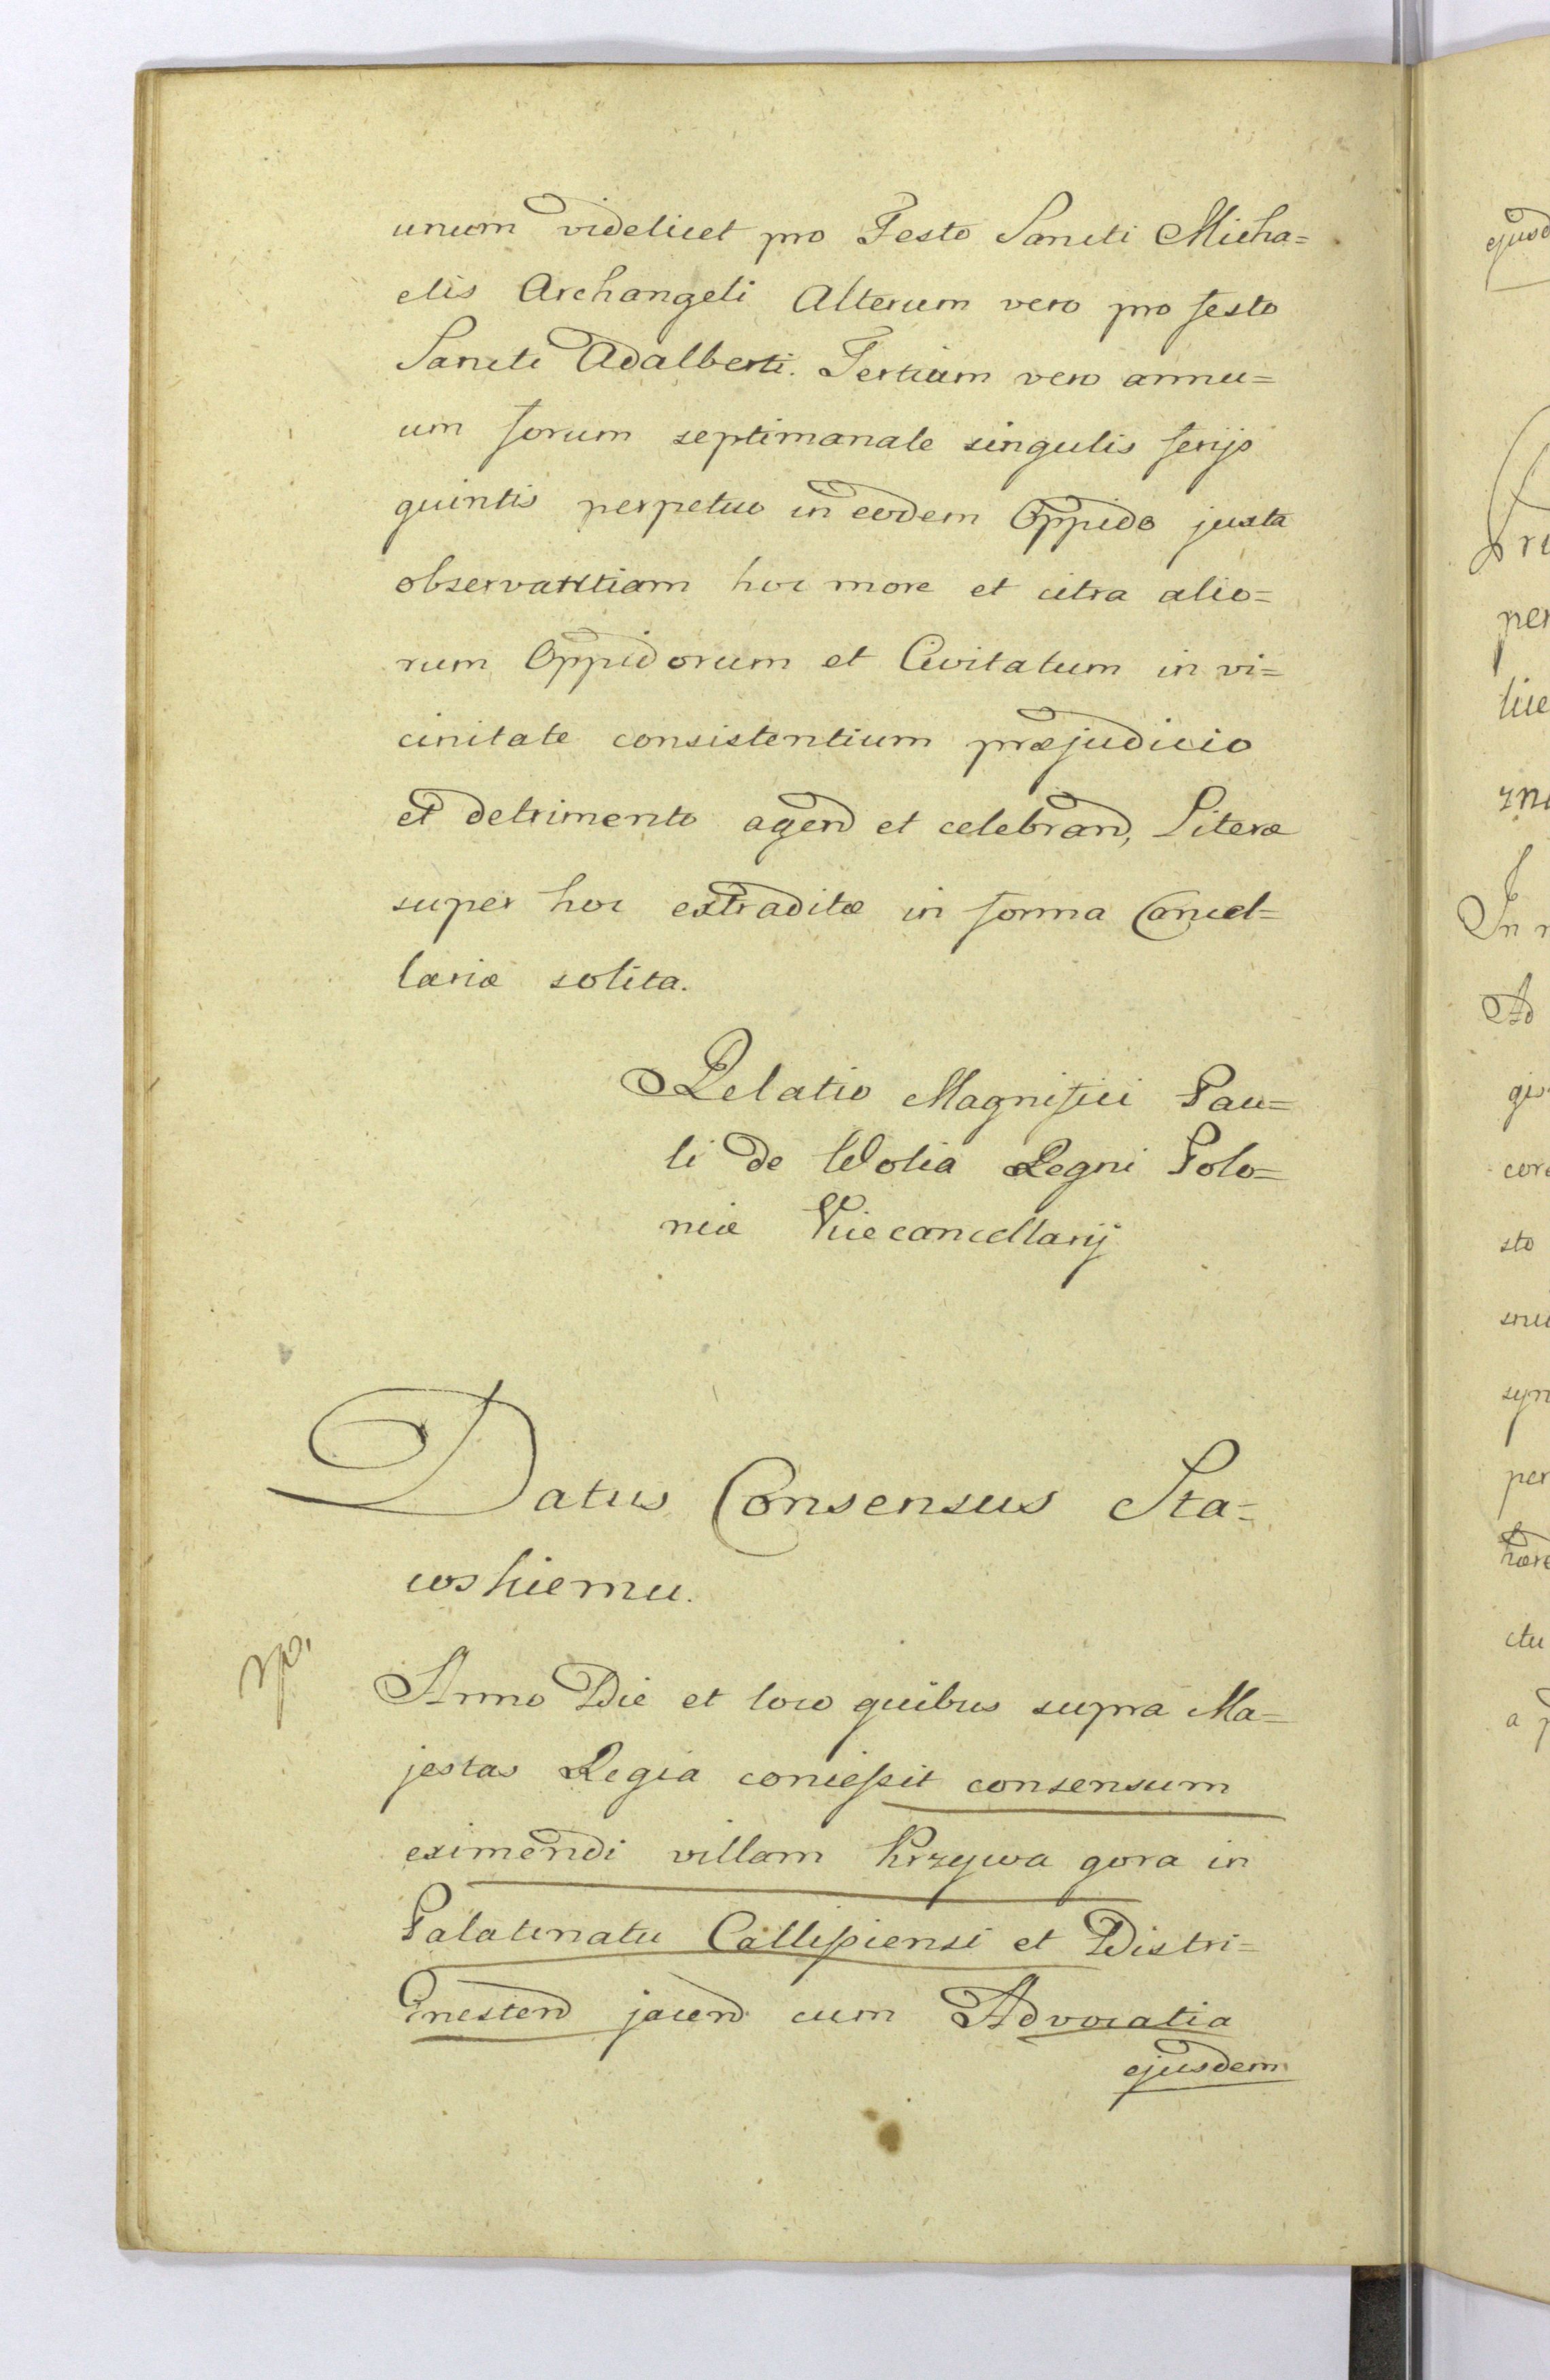 unum videlicet pro Festo Sancti Micha=
elis Archangeli Alterum vero pro festo
Sancti Adalberti. Tertium vero annu=
um forum septimanale singulis ferijs
quintis perpetuo in eodem Oppido juxta
observantiam hoc more et citra alio=
rum Oppidorum et Civitatum in vi=
cinitate consistentium præjudicio
et detrimento agend et celebrand, Literæ
super hoc extraditæ in forma Cancel=
lariæ solita.
Relatio Magnifici Pau=
li de Wolia Regni Polo=
niæ Vicecancellarij
Datus Consensus Sta=
coskiemu.
Anno Die et loco quibus supra Ma=
jestas Regia concessit consensum
eximendi villam Krzywa gora in
Palatinatu Callissiensi et Distri=
jacend cum Advocatia
ejusdem
ejusd
per
lice
In
Ad
gis
core
sto
syn
per
ctu
a